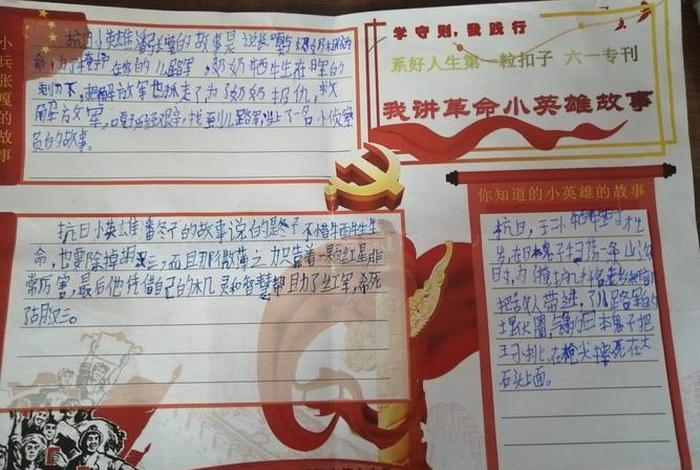 小兵张嘎的故事
抗日小英雄潘的故事是
命,为了掩护在家的八路军,奶奶牺牲在日军的
刺刀下,老解放军也抓走了为了给奶奶报仇,救
解放军,嘎历经艰辛,找到八路军当上了一名小侦察
员的故事。
学守则,我践行
系好人生第一粒扣子 六一专刊
我讲革命小英雄故事
抗日小英雄潘冬子的故事说的是冬子不惜牺牲生
命,也要除掉胡汉三,而且那微薄之力只靠着一颗红星非
常厉害,最后他凭借自己的机灵和智慧帮助了红军,杀死
了胡汉三。
你知道的小英雄的故事
抗日,王二小牺牲时才
岁,在日本鬼子扫荡一条山沟
时,为了掩护
把敌人带进了八路军的
土里火圈,气的日本鬼子把
王二小扎在枪尖摔死在大
石头上面。